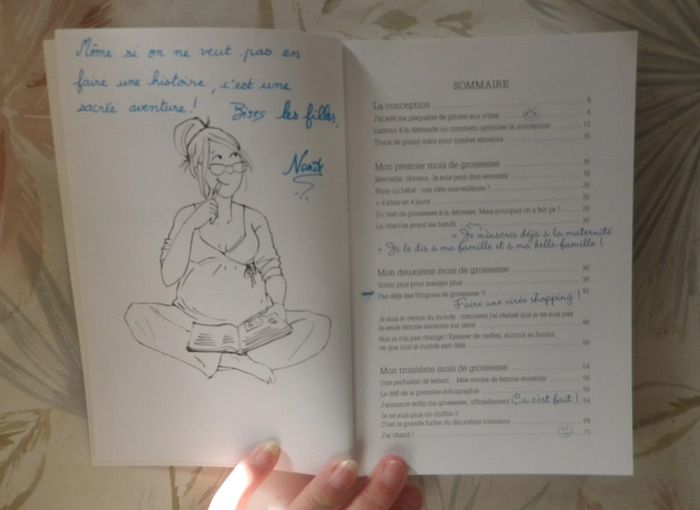 Même si on ne veut pas en
faire une histoire, c'est une
sacrée aventure! Bises les filles,
SOMMAIRE
La conception 6
J'ai jeté ma plaquette de pilules aux orties 8
L'amour à la demande ou comment optimiser la conception 12
Trucs de grand-mère pour tomber enceinte 15
Mon premier mois de grossesse 16
Merveille. Horreur. Je suis peut-être enceinte 18
Faire un bébé : une idée merveilleuse ? 20
+ 4 kilos en 4 jours 22
Du test de grossesse à la détresse. Mais pourquoi on a fait ça ? 28
La charrue avant les bœufs 31
+ Je m'inscris déjà à la maternité
+ Je le dis à ma famille et à ma belle-famille !
Mon deuxième mois de grossesse 36
Vomir plus pour manger plus 38
Pas déjà des fringues de grossesse ?! 42
Faire une virée shopping !
Je suis le centre du monde : comment j'ai réalisé que je ne suis pas
la seule femme enceinte sur terre 46
Non je n'ai pas changé ! Essayer de cacher, surtout au boulot,
ce que tout le monde sait déjà 50
Mon troisième mois de grossesse 54
Une perfusion de kebab... Mes envies de femme enceinte 56
Le défi de la première échographie 59
J'annonce enfin ma grossesse, officiellement Ça c'est fait ! 64
Je ne suis plus un chiffon !!
C'est la grande forme du deuxième trimestre 69
J'ai chaud ! 71